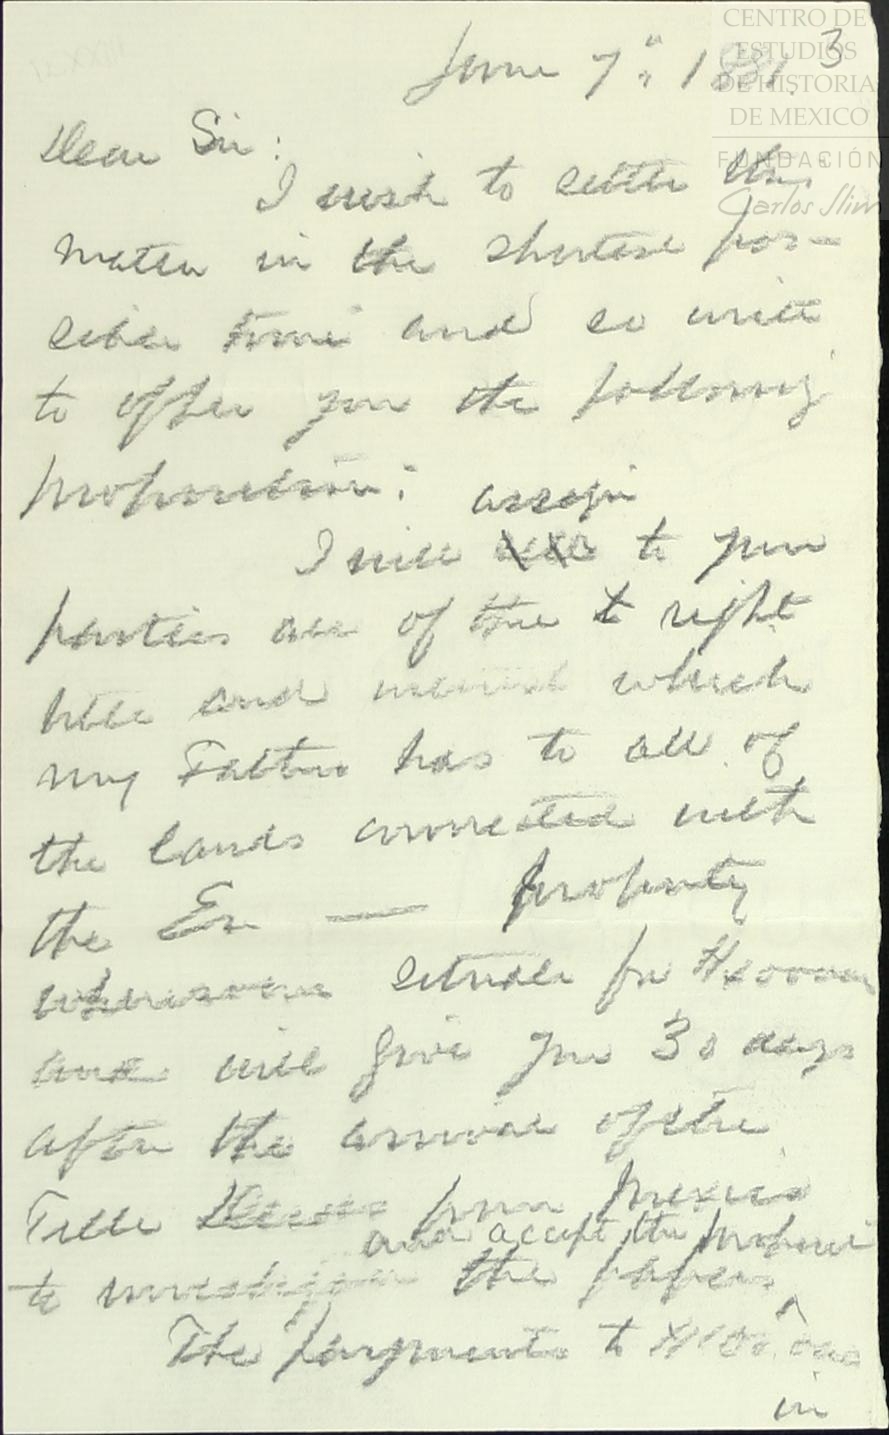 CENTRO DE
ESTUDIOS
DE HISTORIA
DE MEXICO
FUNDACIÓN
Carlos Slim
3
June 7" 1881.
Dear Sir:
I wish to settle this
matter in the shortest pos-
sible time and so write
to offer you the following
proposition:
assign
I will to you
parties all of the t right
title and interest which
my Father has to all of
the lands connected with
the En — property
wheresoever situate for
and will give you 30 days
after the arrival of the
Title Deeds from Mexico
and accept the proposi
to investigate the papers
The payments to
in